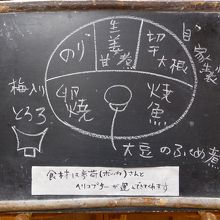 のり
生姜
甘煮
切干
大根
自家製
梅入り
とろろ
卵焼
焼魚
大豆のふくめ煮
食材は歩荷(ボッカ)さんと
ヘリコプターが運んできてくれます